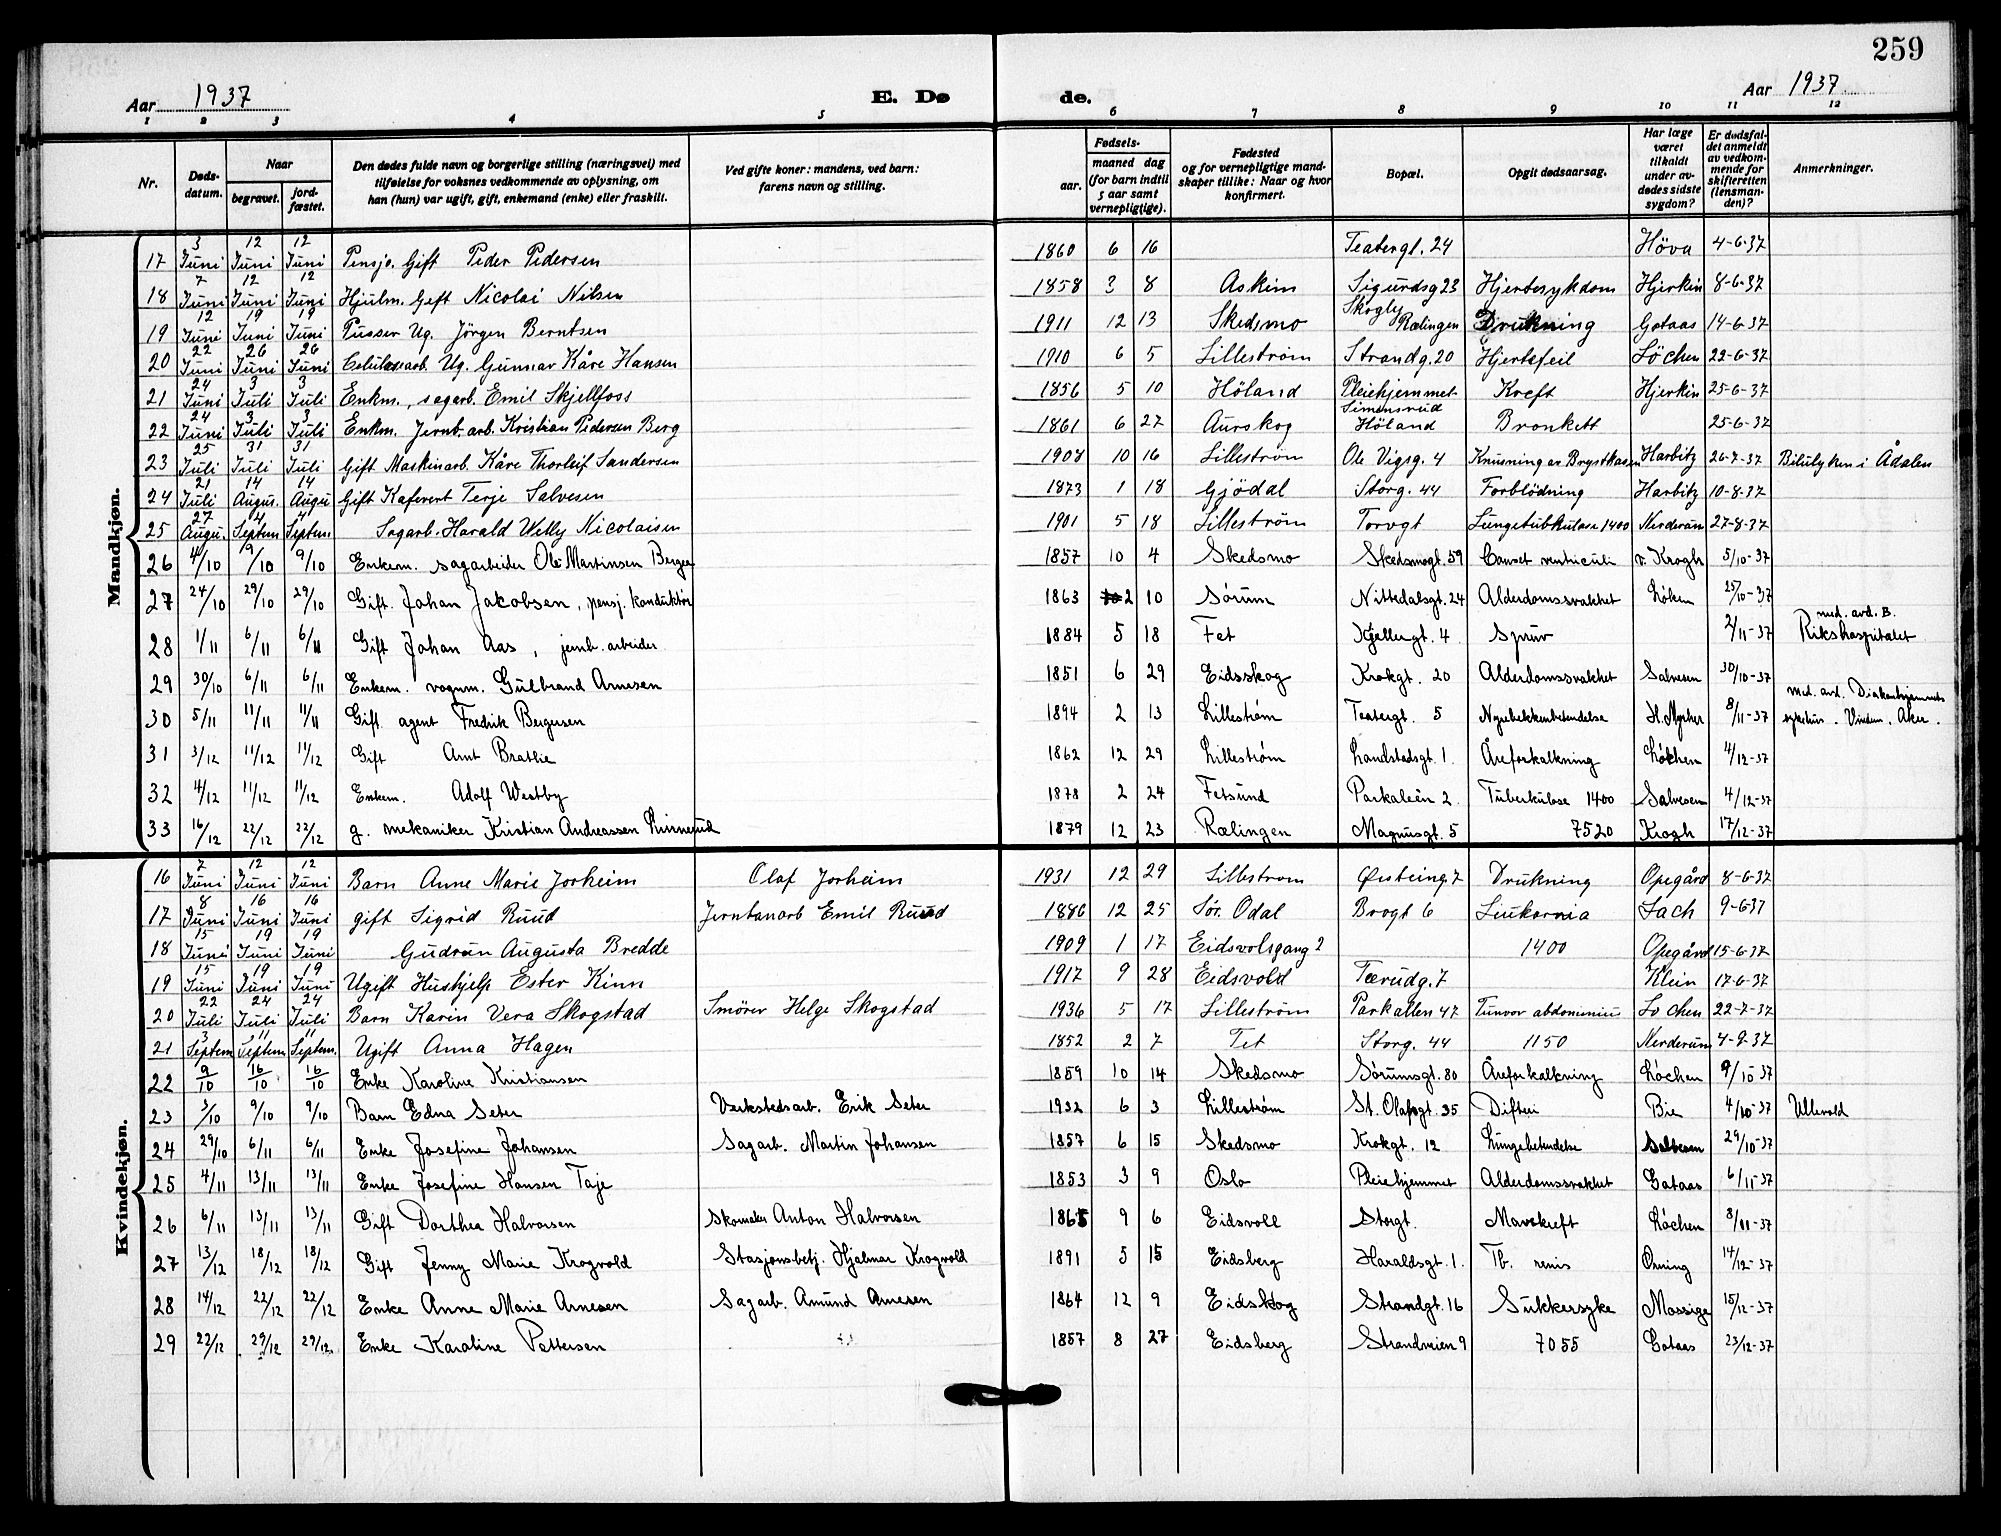 259
Aar 1937 E. Dø de. Aar 1937
1 2 3 4 5 6 7 8 9 10 11 12
Nr. Døds-datum. Naar begravet. jord-fæstet. Den dødes fulde navn og borgerlige stilling (næringsvei) med tilføielse for voksnes vedkommende av oplysning, om han (hun) var ugift, gift, enkemand (enke) eller fraskilt. Ved gifte koner: mandens, ved barn: farens navn og stilling. Fødsels- aar. maaned dag (for barn indtil 5 aar samt vernepligtige). Fødested og for vernepligtige mand-skaper tillike: Naar og hvor konfirmert. Bopæl. Opgit dødsaarsag. Har læge været tilkaldt under av-dødes sidste sygdom? Er dødsfal-det anmeldt av vedkom-mende for skifteretten (lensman-den)? Anmerkninger.
Mandkjøn.
17 3 Juni 12 Juni 12 Juni Pensj. Gift Peder Pedersen 1860 6 16 Teatergt. 24 Höva 4-6-37
18 7 Juni 12 Juni 12 Juni Hjulm. Gift Nicolai Nilsen 1858 3 8 Askim Sigurdsg 23 Hjertesykdom Hjerkin 8-6-37
19 12 Juni 19 Juni 19 Juni Pusser Ug. Jörgen Berntsen 1911 12 13 Skedsmo Skogly Rælingen Drukning Gotaas 14-6-37
20 22 Juni 26 Juni 26 Juni Celulosearb. Ug. Gunnar Kåre Hansen 1910 6 5 Lilleström Strandg. 20 Hjertefeil Löchen 22-6-37
21 24 Juni 3 Juli 3 Juli Enkm., sagarb. Emil Skjellfoss 1856 5 10 Höland Pleiehjemmet Kreft Hjerkin 25-6-37
22 24 Juni 3 Juli 3 Juli Enkm. Jernb. arb. Kristian Pedersen Berg 1861 6 27 Aurskog Simensrud Höland Bronkett 25-6-37
23 25 Juli 31 Juli 31 Juli Gift Maskinarb. Kåre Thorleif Sandersen 1908 10 16 Lilleström Ole Vigsg. 4 Knusning av Brystkassen Harbitz 26-7-37 Bilulyken i Ådalen
24 21 Juli 14 Augus. 14 Augu Gift Kafevert Terje Salvesen 1873 1 18 Gjödal Storg. 44 Forblödning Harbitz 10-8-37
25 27 Augu. 4 Septem 4 Septem. Sagarb. Harald Willy Nicolaisen 1901 5 18 Lilleström Torvgt Lungetubkulose 1400 Nerderum 27-8-37
26 4/10 9/10 9/10 Enkem. sagarbeider Ole Martinsen Berger 1857 10 4 Skedsmo Skedsmogt. 59 Cancer ventriculi v. Krogh 5/10-37
27 24/10 29/10 29/10 Gift. Johan Jakobsen, pensj. konduktör 1863 2 10 Sørum Nittedalsgt. 24 Alderdomssvakhet Löken 25/10-37
28 1/11 6/11 6/11 Gift Johan Aas, jernb. arbeider 1884 5 18 Fet Kjellergt. 4 2/11-37 med. avd. B. Rikshospitalet
29 30/10 6/11 6/11 Enkem. vognm. Gulbrand Arnesen 1851 6 29 Eidsskog Krokgt. 20 Alderdomssvakhet Salvesen 30/10-37
30 5/11 11/11 11/11 Gift agent Fredrik Bergersen 1894 2 13 Lilleström Teatergt. 5 Nyrebekkenbetendelse H. Myhrer 8/11-37 med. avd. Diakonhjemmets sykehus. Vinderen. Aker.
31 3/12 11/12 11/12 Gift Arnt Bratlie 1862 12 29 Lilleström Landstadsgt. 1. Åreforkalkning Lökken 4/12-37
32 4/12 11/12 11/12 Enkem. Adolf Westby 1878 2 24 Fetsund Parkaleèn 2. Tuberkulose 1400 Salvesen 4/12-37
33 16/12 22/12 22/12 g. mekaniker Kristian Andreassen 1879 12 23 Rælingen Magnusgt. 5 7520 Krogh 17/12-37
Kvindekjøn.
16 7 Juni 12 Juni 12 Juni Barn Anne Marie Jorheim Olaf Jorheim 1931 12 29 Lillestrom Østeing. 7 Drukning Opegård 8-6-37
17 8 Juni 16 Juni 16 Juni gift Sigrid Ruud Jernbanarb Emil Ruud 1886 12 25 Sör. Odal Brogt 6 Leukamia Lach 9-637
18 15 Juni 19 Juni 19 Juni Gudrun Augusta Bredde 1909 1 17 Eidsvolsgang 2 1400 Opegård 15-6-37
19 15 Juni 19 Juni 19 Juni Ugift Hushjelp Ester Kinn 1917 9 28 Eidsvold Tærudg. 7 Klein 17-6-37
20 22 Juli 24 Juli 24 Juli Barn Karin Vera Skogstad Smörer Helge Skogstad 1936 5 17 Lilleström Parkallen 47 Tumor abdominius Lochen 22-7-37
21 3 Septem 11 Septem 11 Septem. Ugift Anna Hagen 1852 2 7 Fet Storg. 44 1150 Nerderum 4-9-37
22 9/10 16/10 16/10 Enke Karoline Kristiansen 1859 10 14 Skedsmo Sörumsgt. 80 Åreforkalkning Löchen 9/10-37
23 3/10 9/10 9/10 Barn Edna Seter Verkstedsarb. Erik Seter 1932 6 3 Lilleström St. Olafsgt. 35 Difteri Bie 4/10-37 Ullevold
24 29/10 6/11 6/11 Enke Josefine Johansen Sagarb. Martin Johansen 1857 6 15 Skedsmo Krokgt. 12 Lungebetendelse Salvesen 29/10-37
25 4/11 13/11 13/11 Enke Josefine Hansen Taje 1853 3 9 Oslo Pleiehjemmet Alderdomssvakhet Gataas 6/11-37
26 6/11 13/11 13/11 Gift Dorthea Halvorsen Skomaker Anton Halvorsen 1865 9 6 Eidsvoll Storgt. Mavekreft Löchen 8/11-37
27 13/12 18/12 18/12 Gift Jenny Marie Krogvold Stasjonsbetj. Hjalmar Krogvold 1891 5 15 Eidsberg Haraldsgt. 1. Tb. renis Orning 14/12-37
28 14/12 22/12 22/12 Enke Anne Marie Arnesen Sagarb. Amund Arnesen 1864 12 9 Eidskog Strandgt. 16 Sukkersyke Mossige 15/12-37
29 22/12 29/12 29/12. Enke Karoline Pettersen 1857 8 27 Eidsberg Strandveien 9 7055 Gotaas 23/12-37